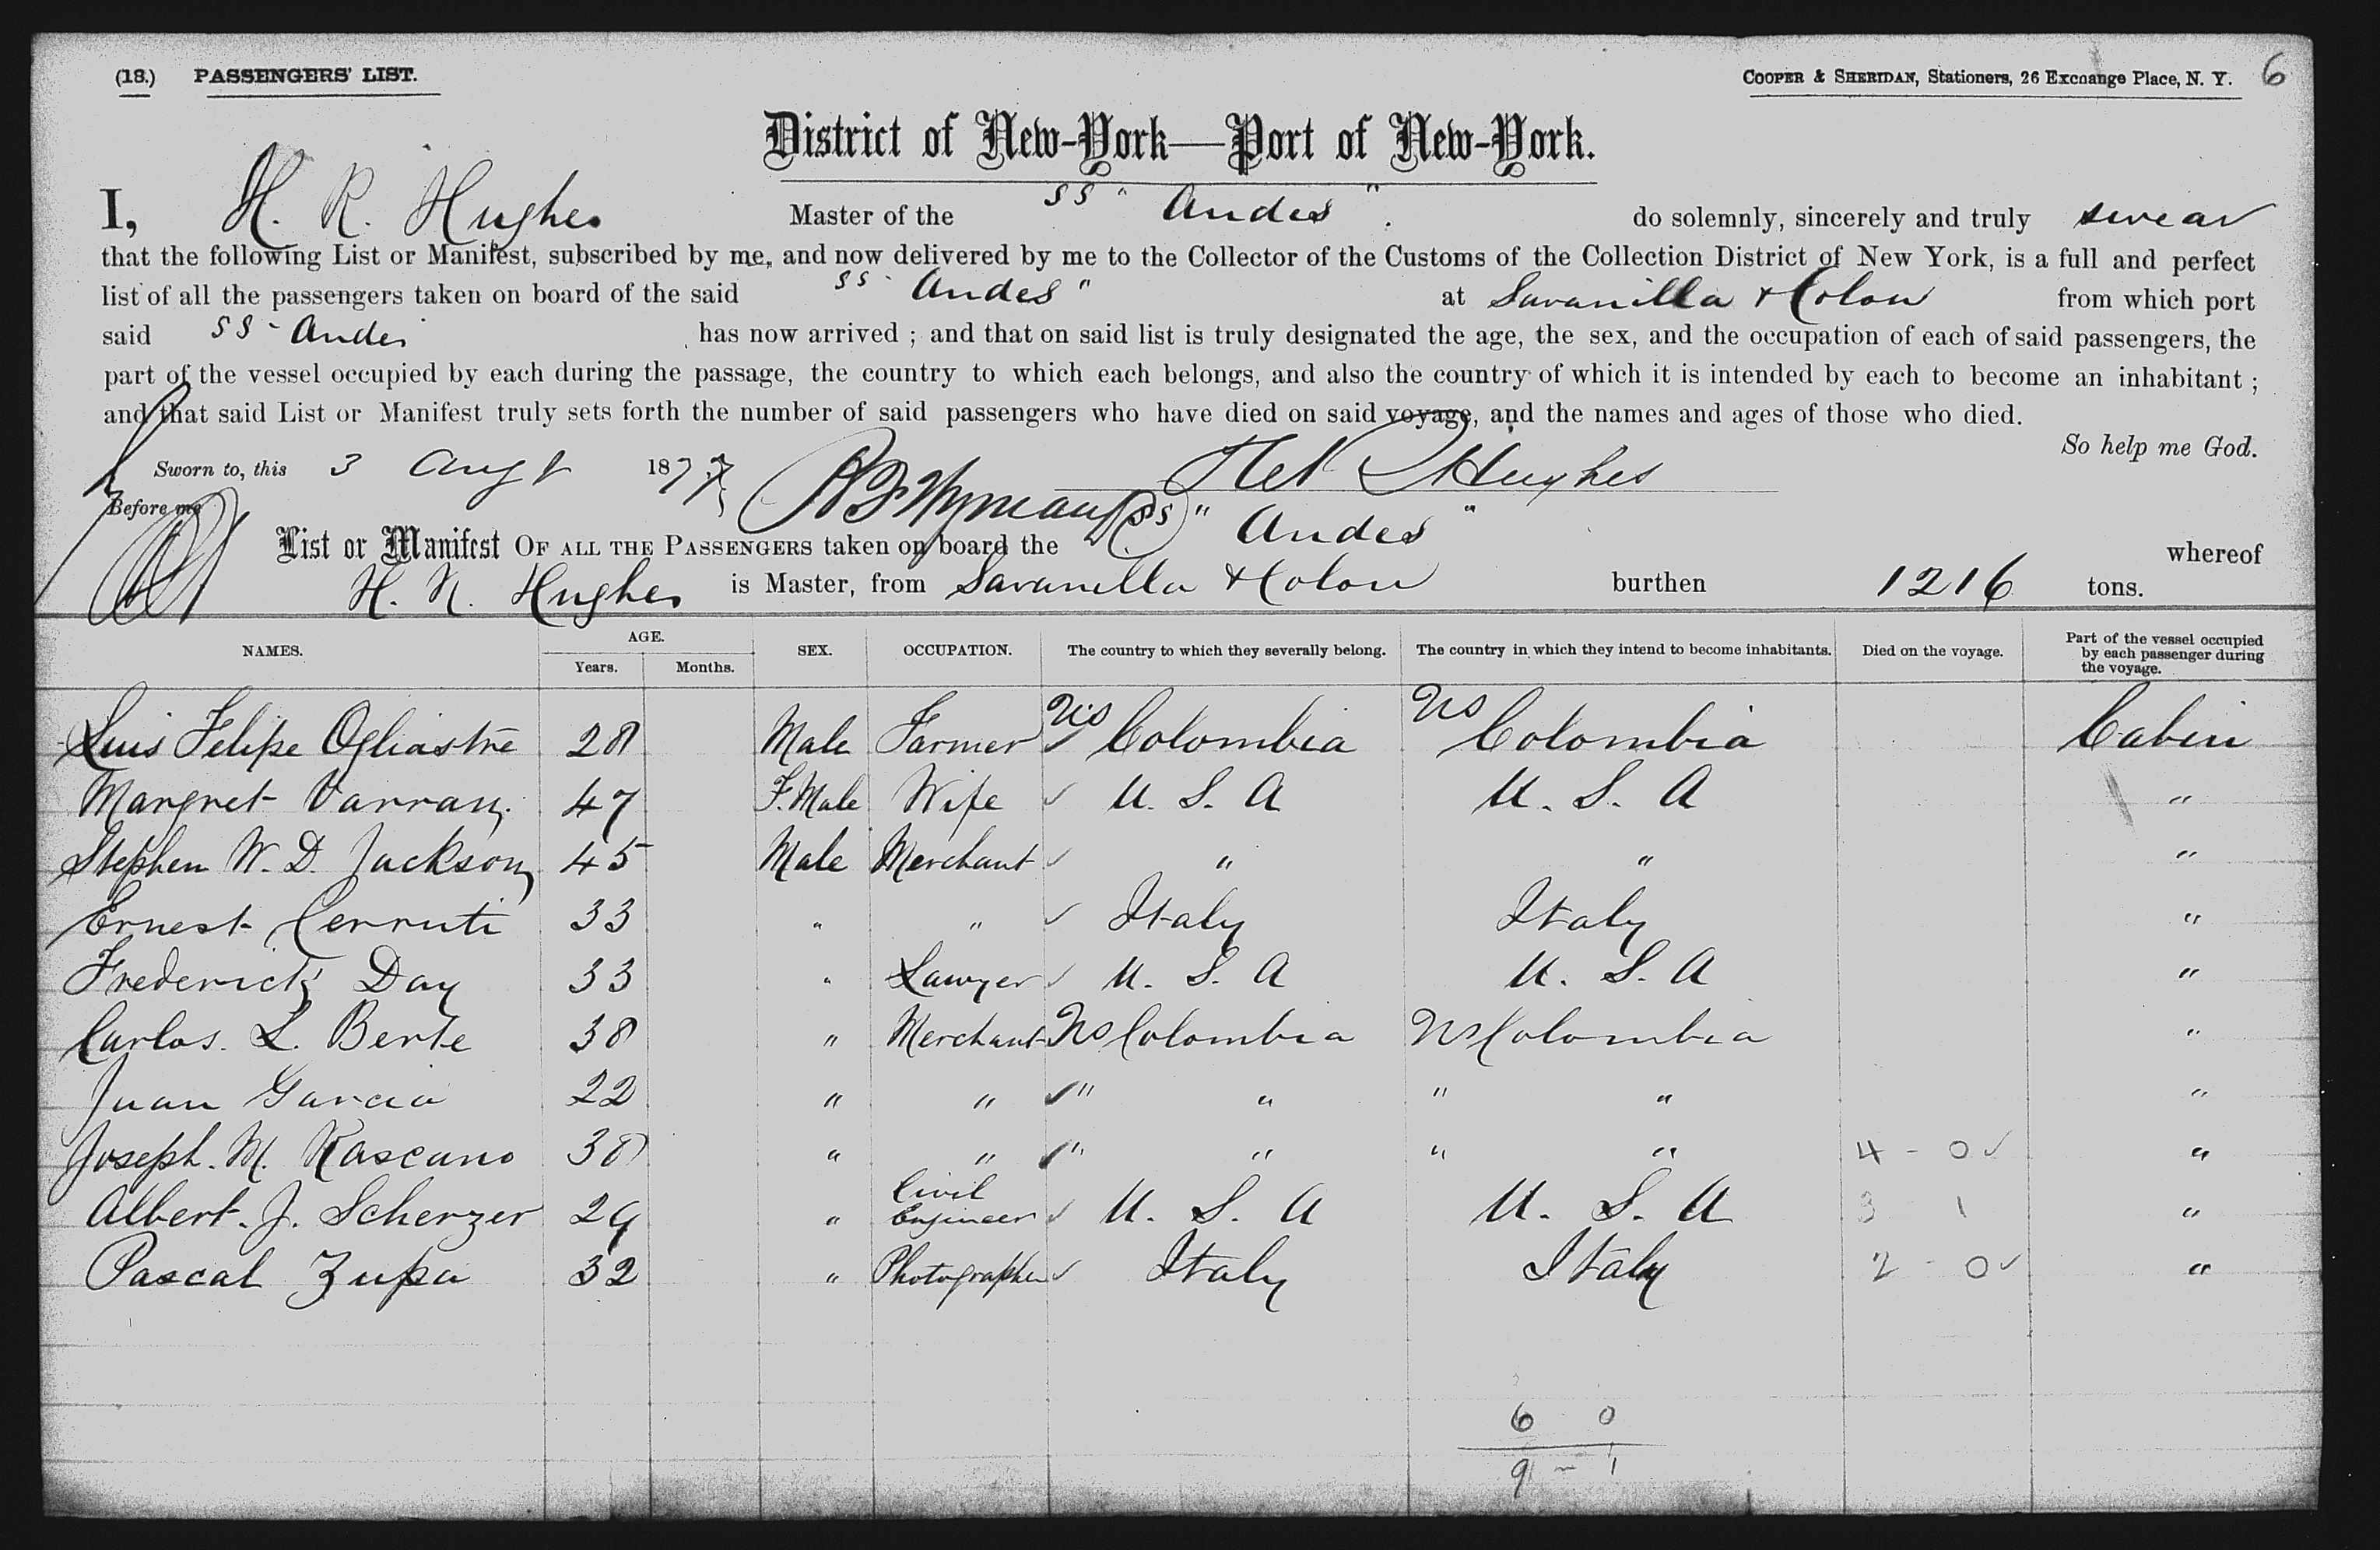 (18.) PASSENGERS' LIST.
COOPER & SHERIDAN, Stationers, 26 Exchange Place, N. Y. 6
District of New-York—Port of New-York.
I, H. R. Hughes Master of the SS "Andes". do solemnly, sincerely and truly swear
that the following List or Manifest, subscribed by me, and now delivered by me to the Collector of the Customs of the Collection District of New York, is a full and perfect
list of all the passengers taken on board of the said SS "Andes" at Savanilla & Colon from which port
said SS Andes has now arrived ; and that on said list is truly designated the age, the sex, and the occupation of each of said passengers, the
part of the vessel occupied by each during the passage, the country to which each belongs, and also the country of which it is intended by each to become an inhabitant ;
and that said List or Manifest truly sets forth the number of said passengers who have died on said voyage, and the names and ages of those who died.
So help me God.
Sworn to, this 3 Augt 1877 Hughes
Before me
List or Manifest OF ALL THE PASSENGERS taken on board the SS "Andes" whereof
H. R. Hughes is Master, from Savanilla & Colon burthen 1216 tons.
NAMES. AGE. Years. Months. SEX. OCCUPATION. The country to which they severally belong. The country in which they intend to become inhabitants. Died on the voyage. Part of the vessel occupied by each passenger during the voyage.
Luis Felipe Ogliastre 28 Male Farmer US Colombia US Colombia Cabin
Margret Varran 47 F.Male Wife U. S. A U. S. A "
Stephen W. D. Jackson 45 Male Merchant " " "
Ernest Cerruti 33 " " Italy Italy "
Frederick Day 33 " Lawyer U. S. A U. S. A "
Carlos. L. Berte 38 " Merchant US Colombia US Colombia "
Juan Garcia 22 " " " " " " "
Joseph. M. Rascano 38 " " " " " " 4 - 0 "
Albert. J. Scherzer 29 " Civil Engineer U. S. A U. S. A 3 1 "
Pascal Zupa 32 " Photographer Italy Italy 2 - 0 "
6 0
9 - 1